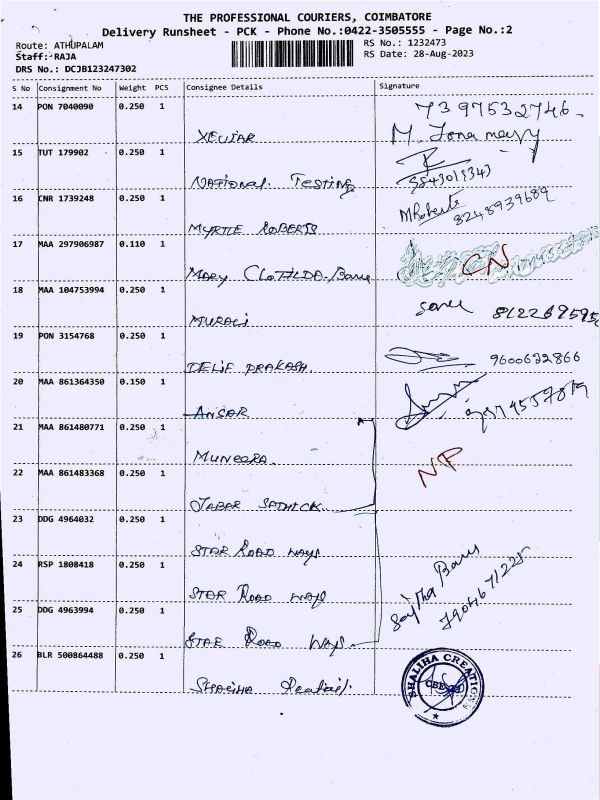 THE PROFESSIONAL COURIERS, COIMBATORE
Delivery Runsheet - PCK - Phone No.:0422-3505555 - Page No.:2
Route: ATHUPALAM
RS No.: 1232473
Staff: RAJA
RS Date: 28-Aug-2023
DRS No.: DCJB123247302
S No Consignment No Weight PCS Consignee Details Signature
14 PON 7040090 0.250 1
7397532746
XEVIAR M.
15 TUT 179902 0.250 1
NATIONAL TESTING
16 CNR 1739248 0.250 1
MRoberts
8248939689
MYRTLE ROBERTS
17 MAA 297906987 0.110 1
CN
MARY CLOTILDA Banu
18 MAA 104753994 0.250 1
MURALI
19 PON 3154768 0.250 1
9600632866
DELIF PRAKASH.
20 MAA 861364350 0.150 1
ANSAR
21 MAA 861480771 0.250 1
MUNEERA.
NP
22 MAA 861483368 0.250 1
JABAR SATHICK
23 DDG 4964032 0.250 1
STAR ROAD WAYS
24 RSP 1808418 0.250 1
STAR ROAD WAYS
Sajitha Banu
7904671225
25 DDG 4963994 0.250 1
STAR ROAD WAYS
26 BLR 500864488 0.250 1
SHALIHA
SHALIHA CREATIONS